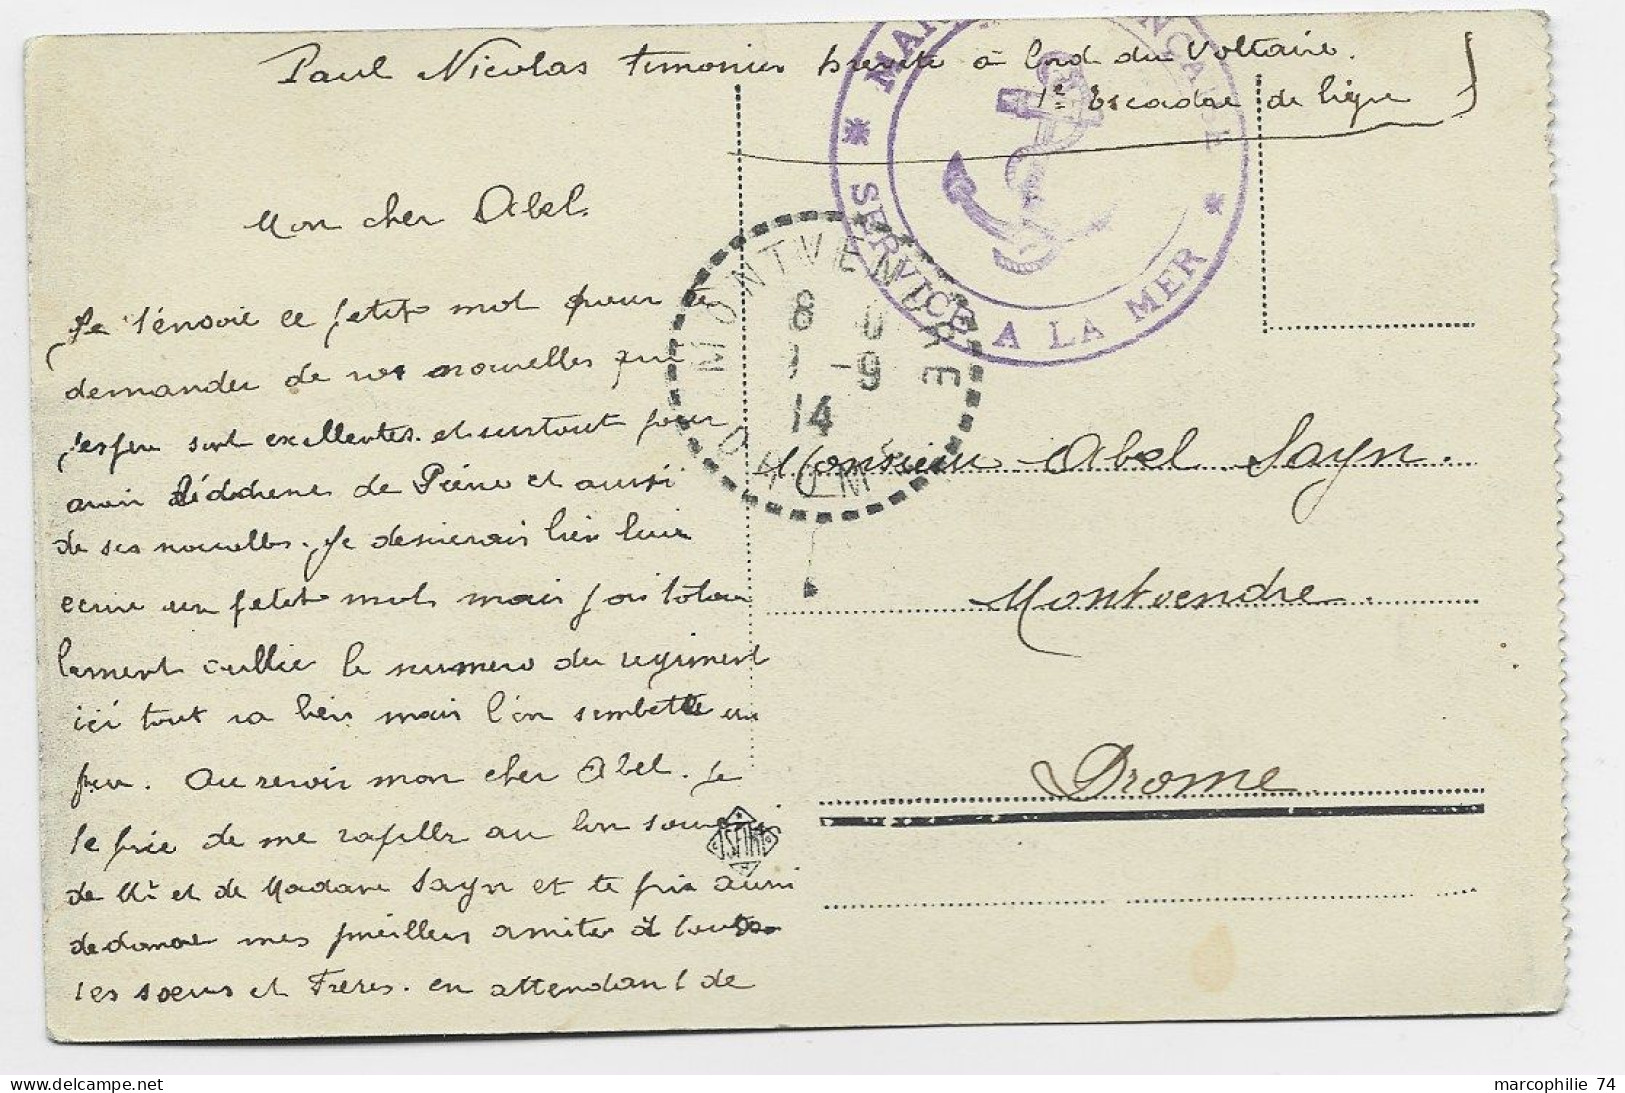 Paul Nicolas timonier breveté à bord du Voltaire.
1e Escadre de ligne
MARINE FRANÇAISE
* SERVICE A LA MER *
Mon cher Abel.
Je t'envoie ce petit mot pour te
demander de vos nouvelles qui
j'espere sont excellentes. et surtout pour
avoir l'addresse de Pierre et aussi
de ses nouvelles. Je desirerais bien lui
ecrire un petit mot mais j'ai totau
lement oublié le numero du regiment
ici tout va bien mais l'on s'embette un
peu. Au revoir mon cher Abel. Je
te prie de me rapeller au bon souvenir
de Mr et de Madame Sayn et te prie aussi
de donner mes meilleurs amities à toutes
tes soeurs et Freres. en attendant de
MONTVENDRE
8
7 -9
14
DROME
Monsieur Abel Sayn.
Montvendre.
Drome.
marcophilie 74